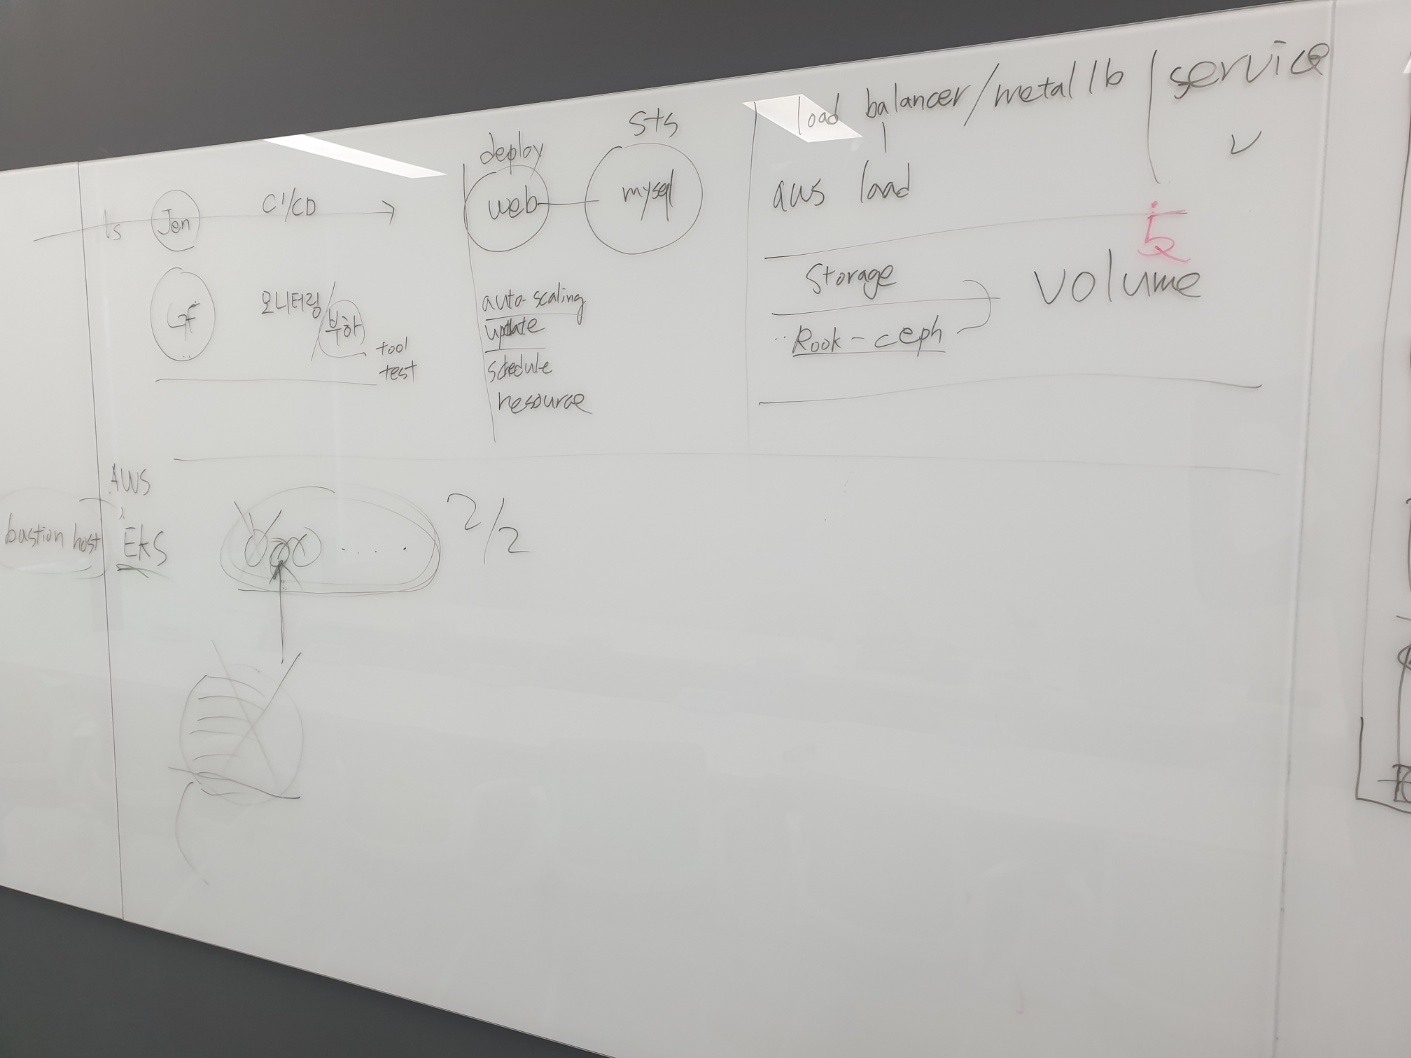 Jen CI/CD
GF 모니터링/부하
tool
test
deploy
web
sts
mysql
auto-scaling
update
schedule
resource
load balancer/metallb
service
aws load
Storage
Rook-ceph
volume
AWS
bastion host
EKS
2/2